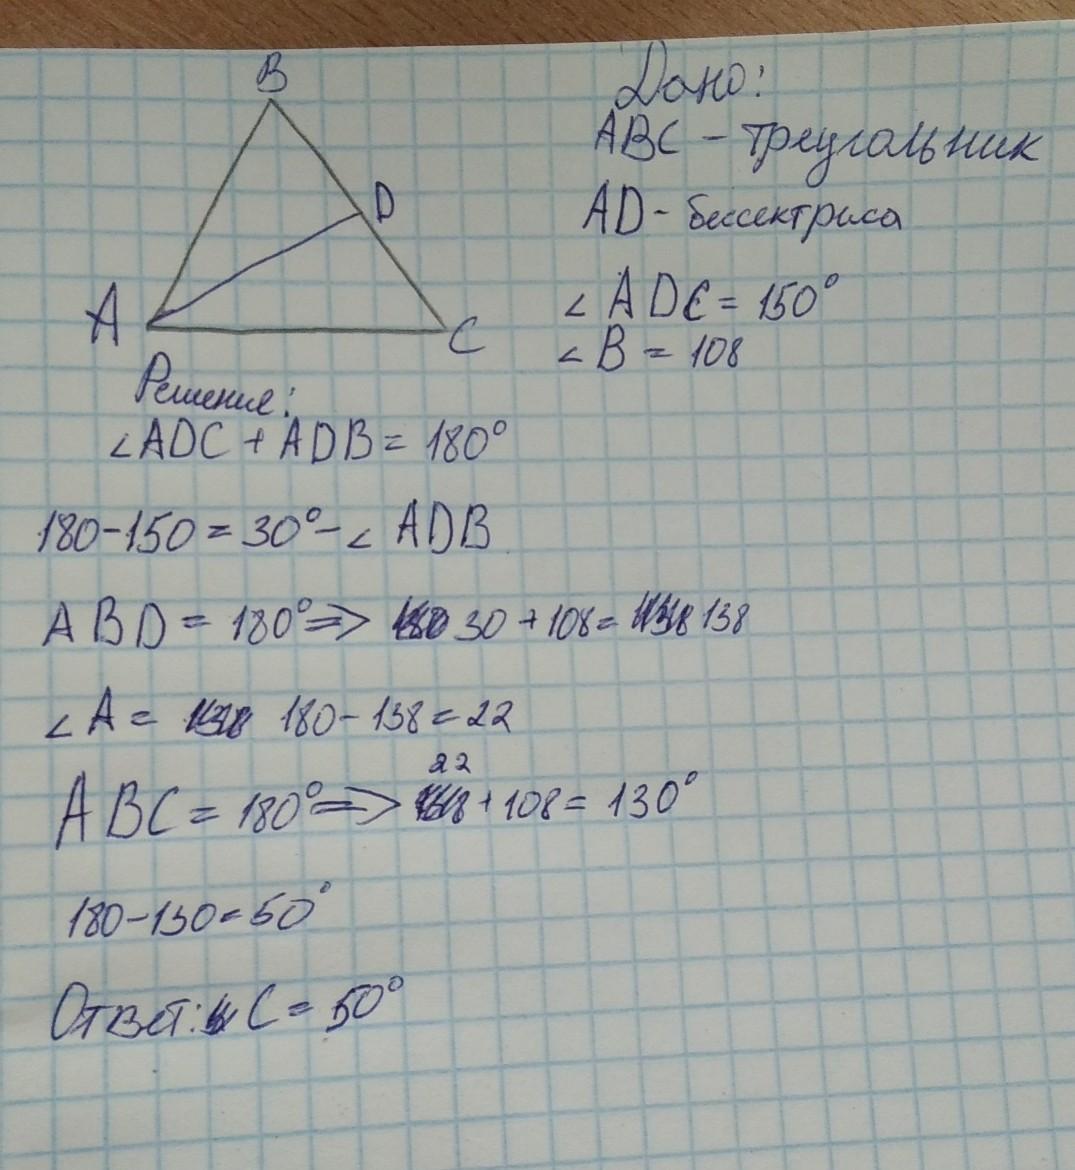 B
D
A
C
Дано:
ABC - треугольник
AD - биссектриса
∠ ADC = 150°
∠ B = 108
Решение:
∠ADC + ADB = 180°
180-150 = 30° - ∠ ADB
ABD = 180° => 30 + 108 = 138
∠ A = 180 - 138 = 22
22
ABC = 180° => + 108 = 130°
180-130 = 50°
Ответ: C = 50°